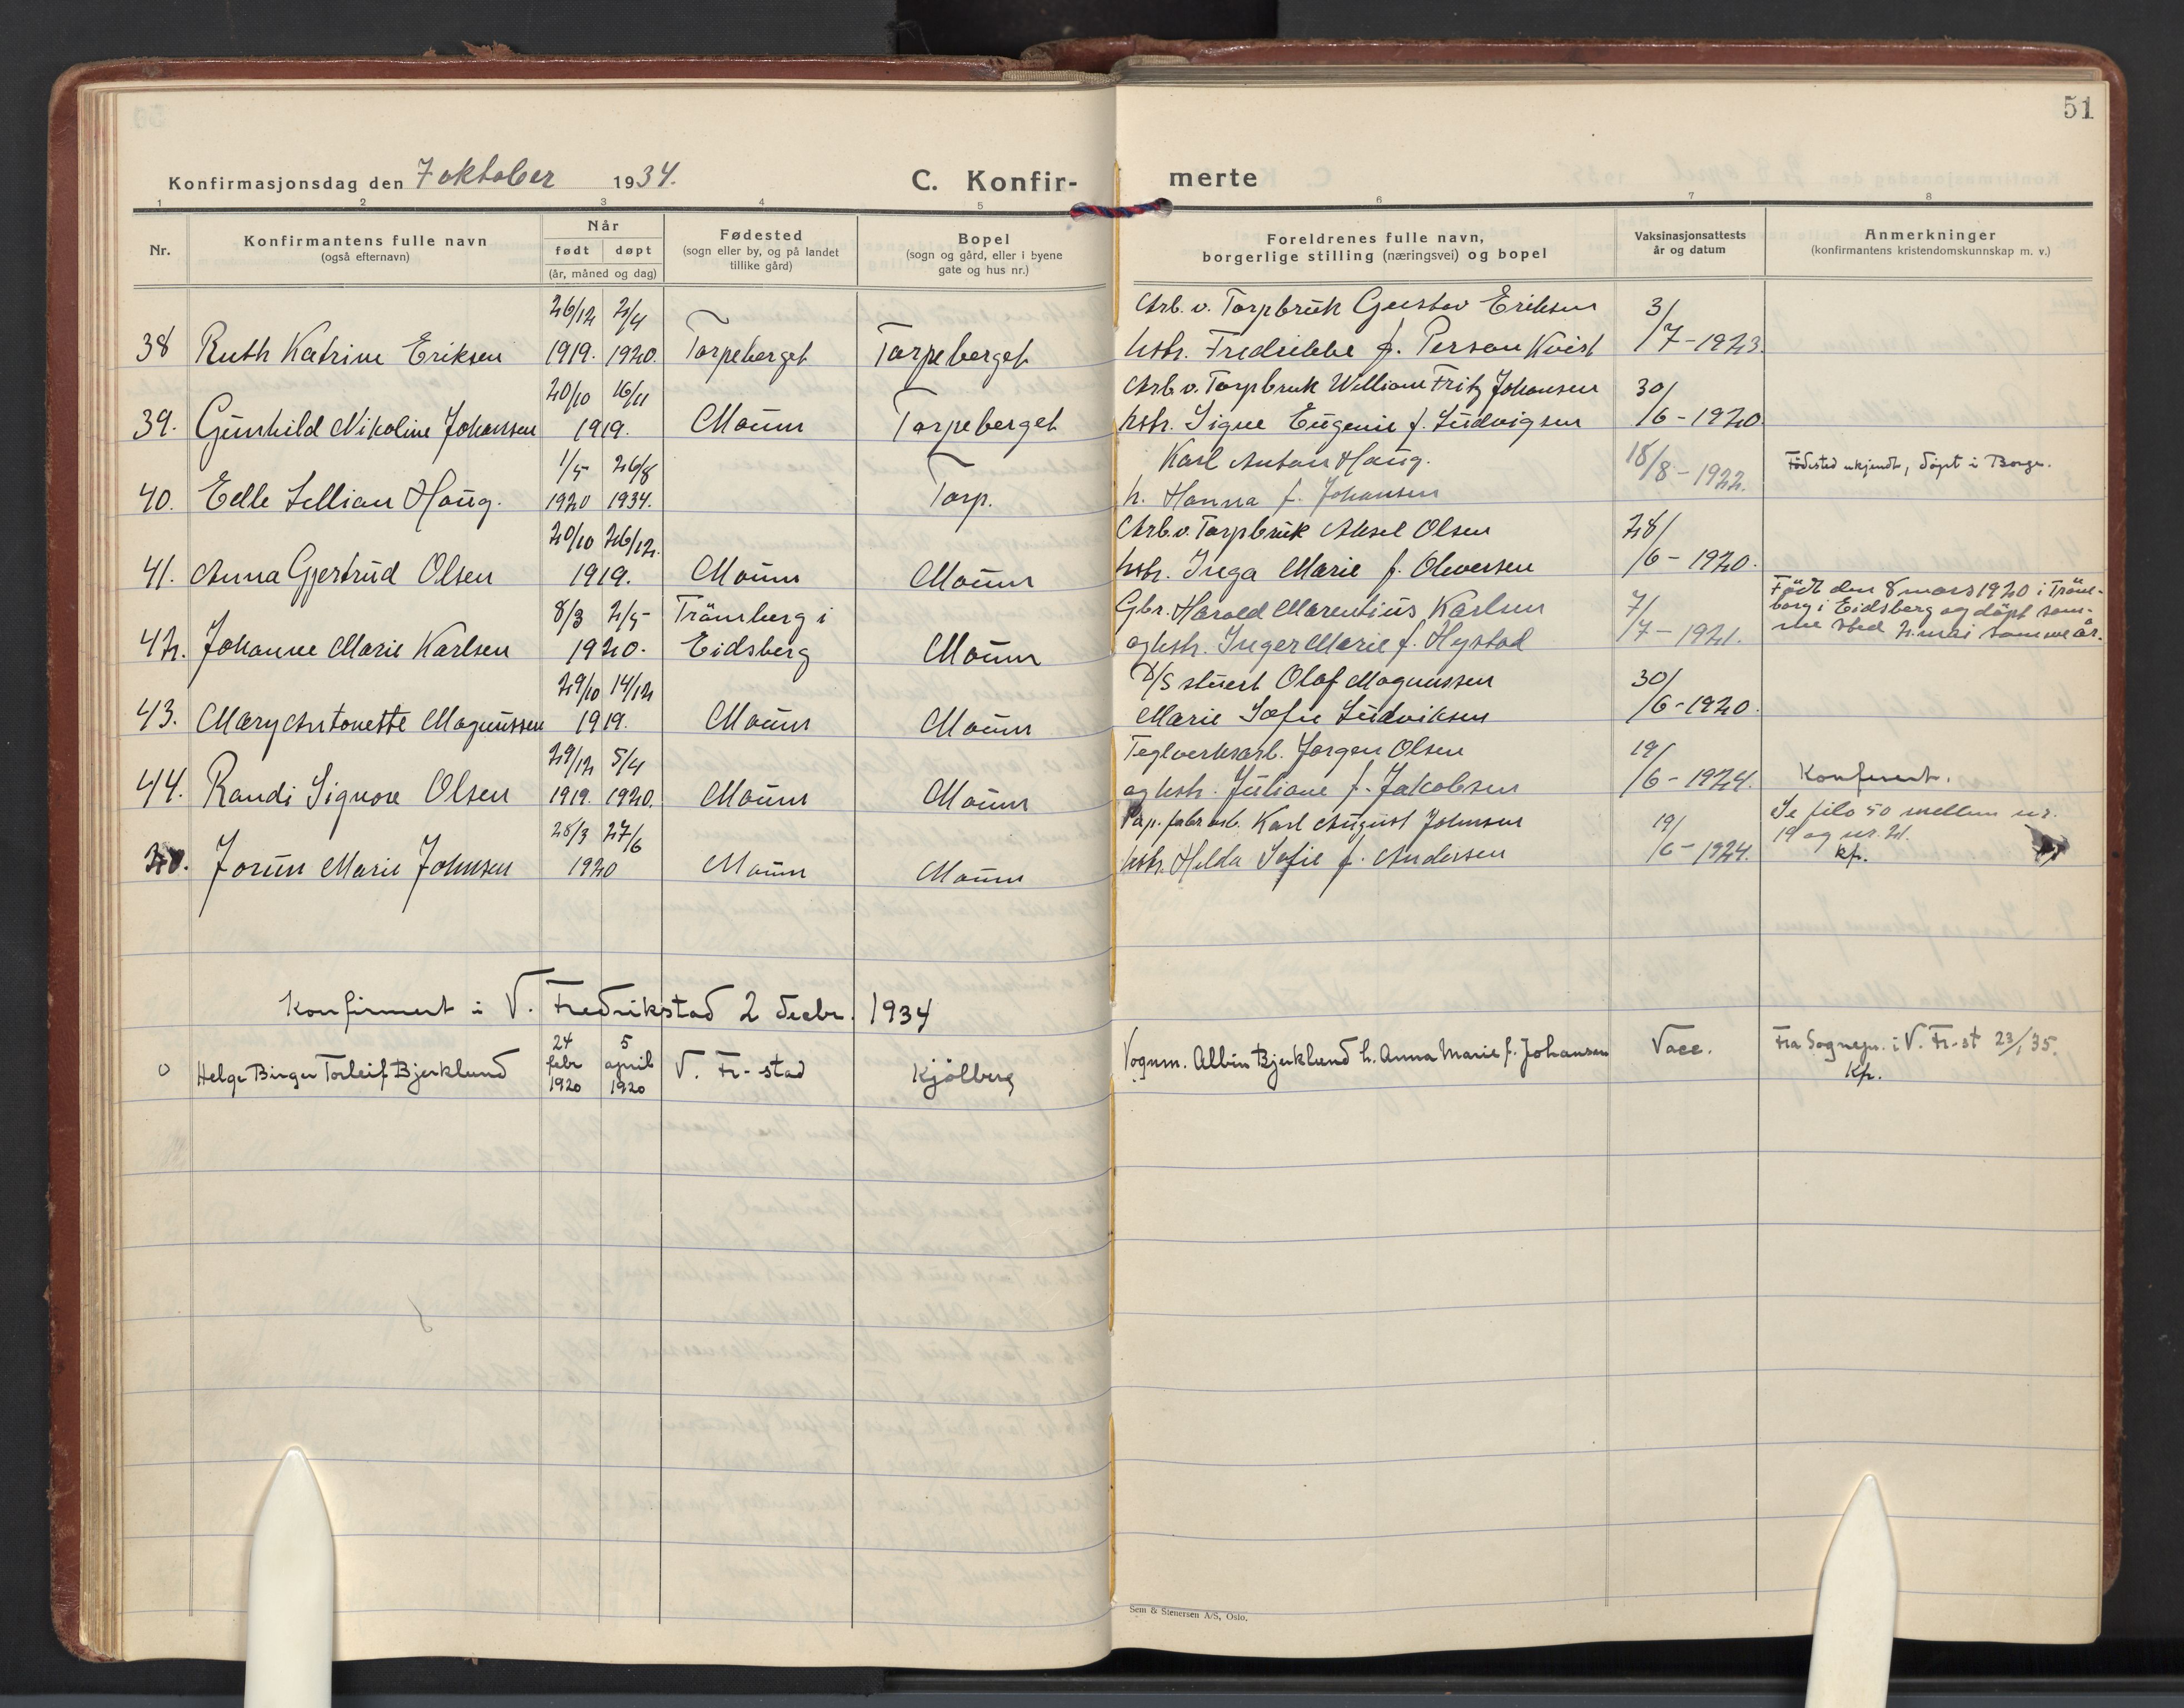 51
Konfirmasjonsdag den 7 oktober 1934.
C. Konfir-
merte
1 2 3 4 5 6 7 8
Nr.
Konfirmantens fulle navn
(også efternavn)
Når
født døpt
(år, måned og dag)
Fødested
(sogn eller by, og på landet
tillike gård)
Bopel
(sogn og gård, eller i byene
gate og hus nr.)
Foreldrenes fulle navn,
borgerlige stilling (næringsvei) og bopel
Vaksinasjonsattests
år og datum
Anmerkninger
(konfirmantens kristendomskunnskap m. v.)
26/12 2/4 Arb. v. Torpbruk Gustav Eriksen 3/
38 Ruth Katrine Eriksen 1919. 1920. Torpeberget Torpeberget hstr. Fredrikke f. Person Kvist /7-1923.
20/10 16/11 Arb. v. Torpbruk William Fritz Johansen 30/
39. Gunhild Nikoline Johansen 1919. Moum Torpeberget hstr. Signe Eugenie f. Ludvigsen /6-1920
1/5 26/8 Karl Anton Haug. 18/8-1922. Födested ukjendt, döpt i Borge.
40. Edle Lillian Haug. 1920 1934. Torp. h. Hanna f. Johansen
20/10 26/12. Arb. v. Torpbruk Aksel Olsen 28/
41. Anna Gjertrud Olsen 1919. Moum Moum hstr. Inga Marie f. Oliversen /6-1920.
8/3 2/5 Trömberg i Gbr. Harald Marentius Karlsen 7/ Född den 8 mars 1920 i Tröm-
borg i Eidsberg og döpt sam-
42. Johanne Marie Karlsen 1920. Eidsberg Moum og hstr. Inger Marie f. Hystad /7-1921. me sted 2. mai samme år.
29/10 14/12 D/S stuert Olaf Magnussen 30/
43. Mary Antonette Magnussen 1919. Moum Moum Marie Sofie Ludviksen /6-1920.
29/12 5/4 Teglverksarb. Jørgen Olsen 19/
44. Randi Signore Olsen 1919. 1920. Moum Moum og hstr. Juliane f. Jakobsen /6-1924. Konferert.
28/3 27/6 Pap. fabr. arb. Karl August Johnsen 19/ Se filo 50 mellem nr.
19 og nr. 21.
20. Jorun Marie Johnsen 1920 Moum Moum hstr. Hilda Sofie f. Andersen /6-1924. kf.
Konfirmert i V. Fredrikstad 2 decbr. 1934
24 5
0 Helge Birger Torleif Bjerklund febr april V. Fr-stad Kjölberg Vognm. Albin Bjerklund h. Anna Marie f. Johansen Vacc. Fra Sognepr. i V. Fr-st 23/1 35.
1920 1920 Kf.
Sem & Stenersen A/S, Oslo.